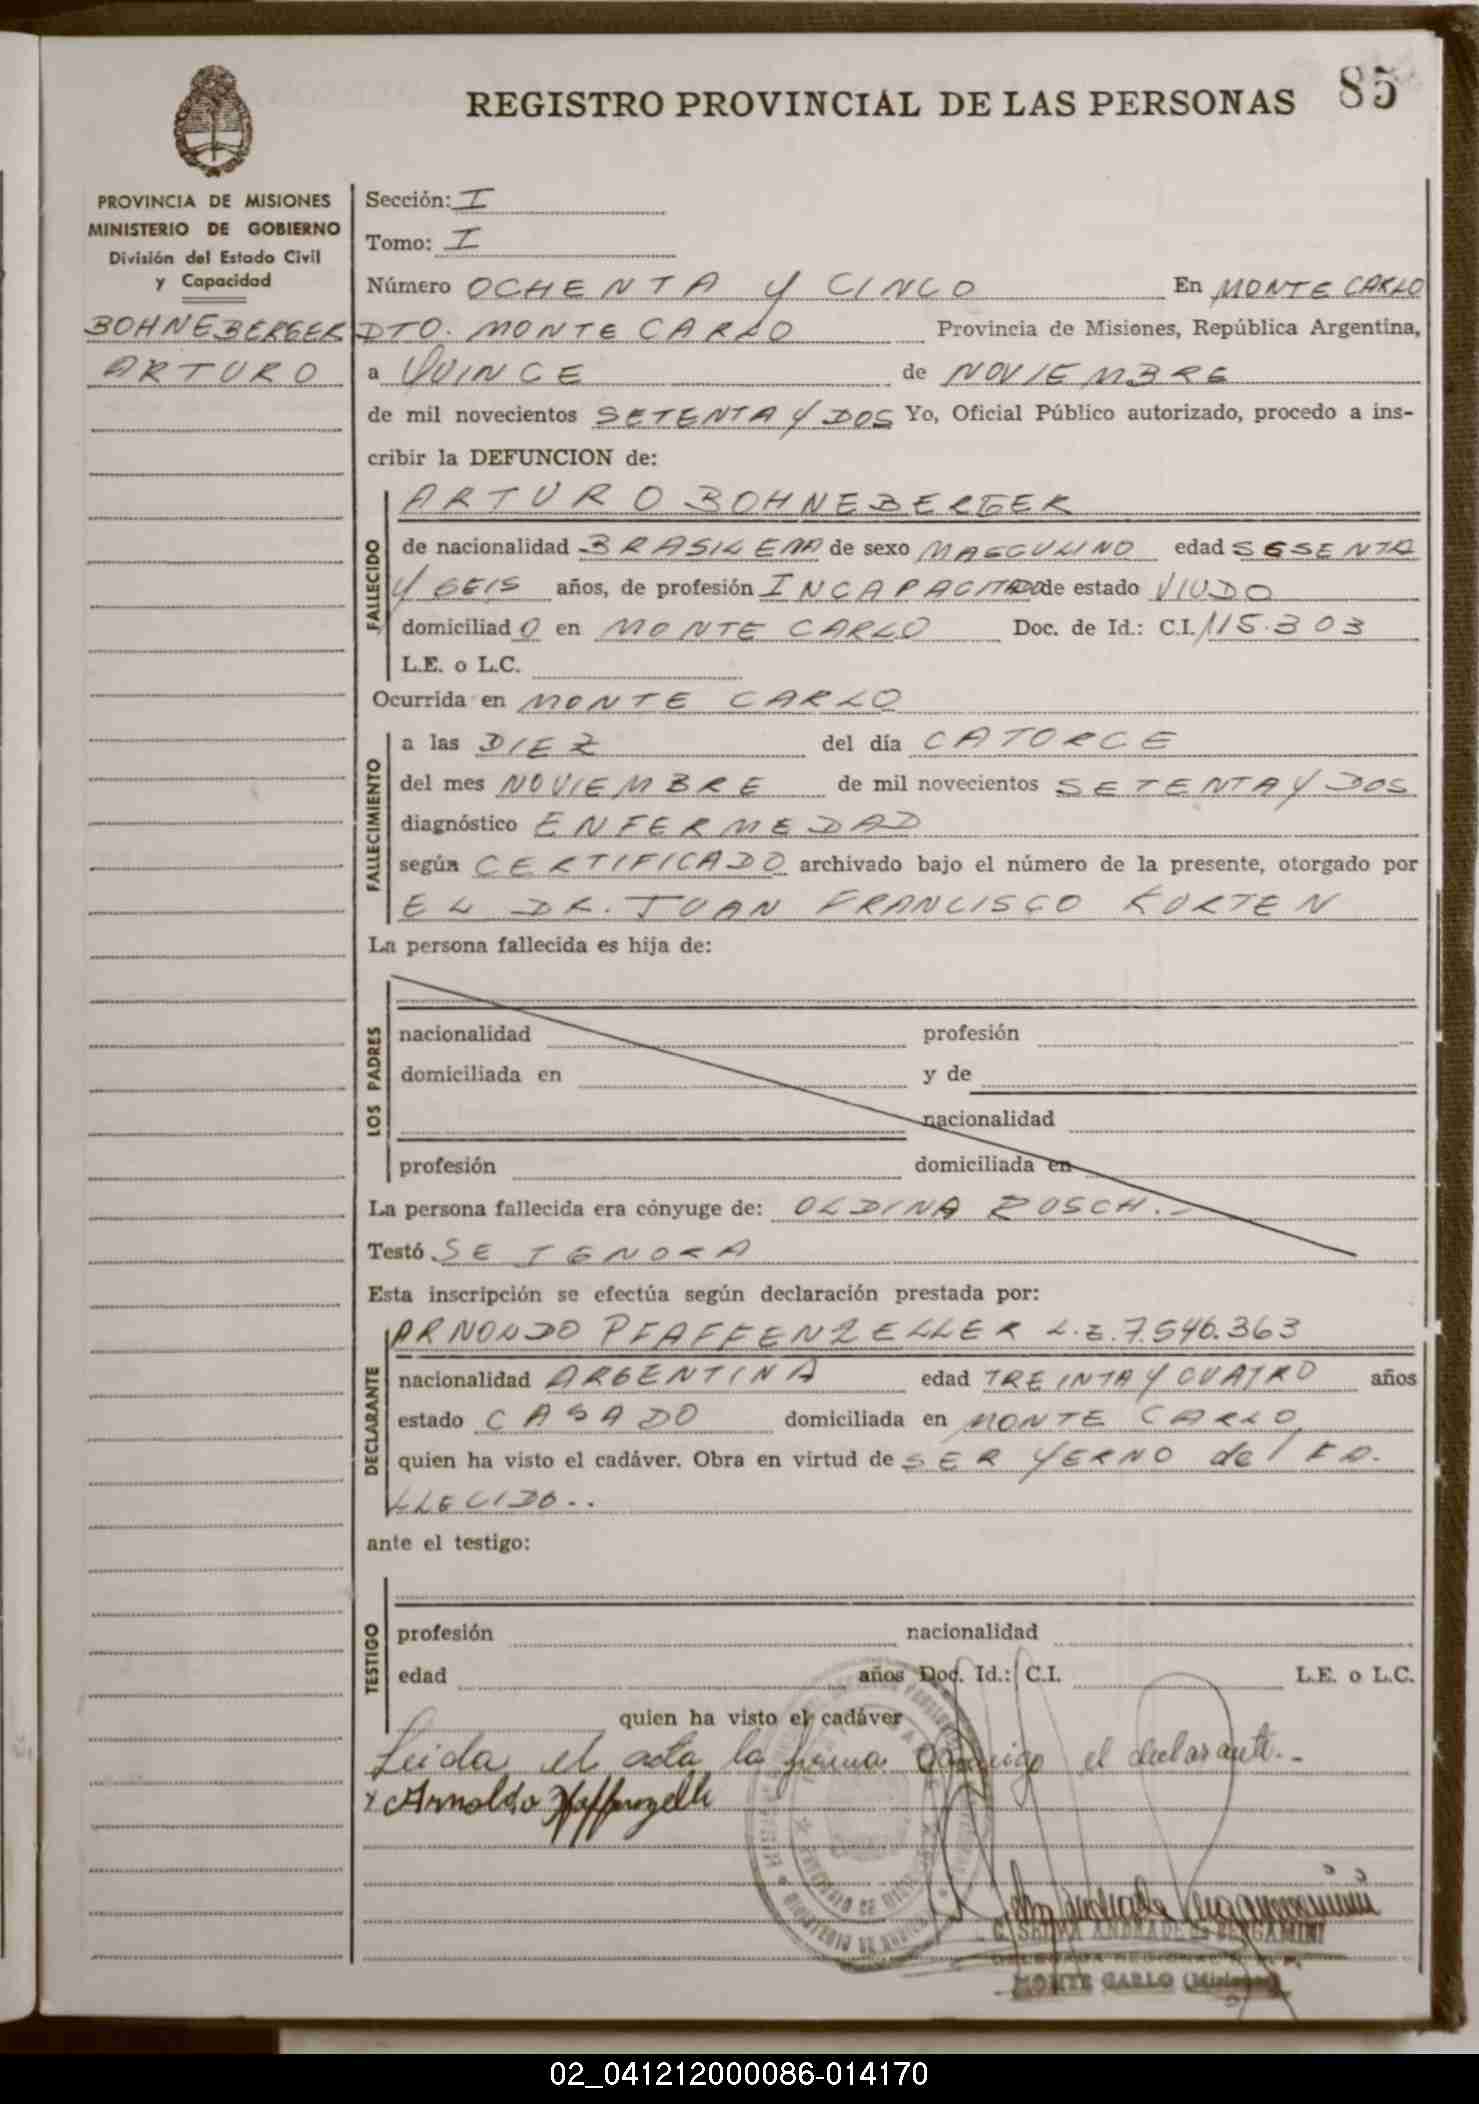 REGISTRO PROVINCIAL DE LAS PERSONAS 85
PROVINCIA DE MISIONES
MINISTERIO DE GOBIERNO
División del Estado Civil
y Capacidad
BOHNEBERGER
ARTURO
Sección: I
Tomo: I
Número OCHENTA Y CINCO En MONTE CARLO
DTO. MONTE CARLO Provincia de Misiones, República Argentina,
a QUINCE de NOVIEMBRE
de mil novecientos SETENTA Y DOS Yo, Oficial Público autorizado, procedo a ins-
cribir la DEFUNCION de:
FALLECIDO
ARTURO BOHNEBERGER
de nacionalidad BRASILEÑA de sexo MASCULINO edad SESENTA
Y SEIS años, de profesión INCAPACITADO de estado VIUDO
domiciliad O en MONTE CARLO Doc. de Id.: C.I. 115.303
L.E. o L.C.
Ocurrida en MONTE CARLO
FALLECIMIENTO
a las DIEZ del día CATORCE
del mes NOVIEMBRE de mil novecientos SETENTA Y DOS
diagnóstico ENFERMEDAD
según CERTIFICADO archivado bajo el número de la presente, otorgado por
EL DR. JUAN FRANCISCO KURTEN
La persona fallecida es hija de:
LOS PADRES
nacionalidad profesión
domiciliada en y de
nacionalidad
profesión domiciliada en
La persona fallecida era cónyuge de: OLDINA ROSCH.-
Testó SE IGNORA
Esta inscripción se efectúa según declaración prestada por:
DECLARANTE
ARNOLDO PFAFFENZELLER L.E. 7.546.363
nacionalidad ARGENTINA edad TREINTA Y CUATRO años
estado CASADO domiciliada en MONTE CARLO
quien ha visto el cadáver. Obra en virtud de SER YERNO del FA-
LLECIDO..
ante el testigo:
TESTIGO
profesión nacionalidad
edad años Doc. Id.: C.I. L.E. o L.C.
quien ha visto el cadáver
Leida el acta la firma conmigo el declarante.-
x Arnoldo Pfaffenzeller
ANDRADE BERGAMINI
MONTE CARLO (Misiones)
02_041212000086-014170